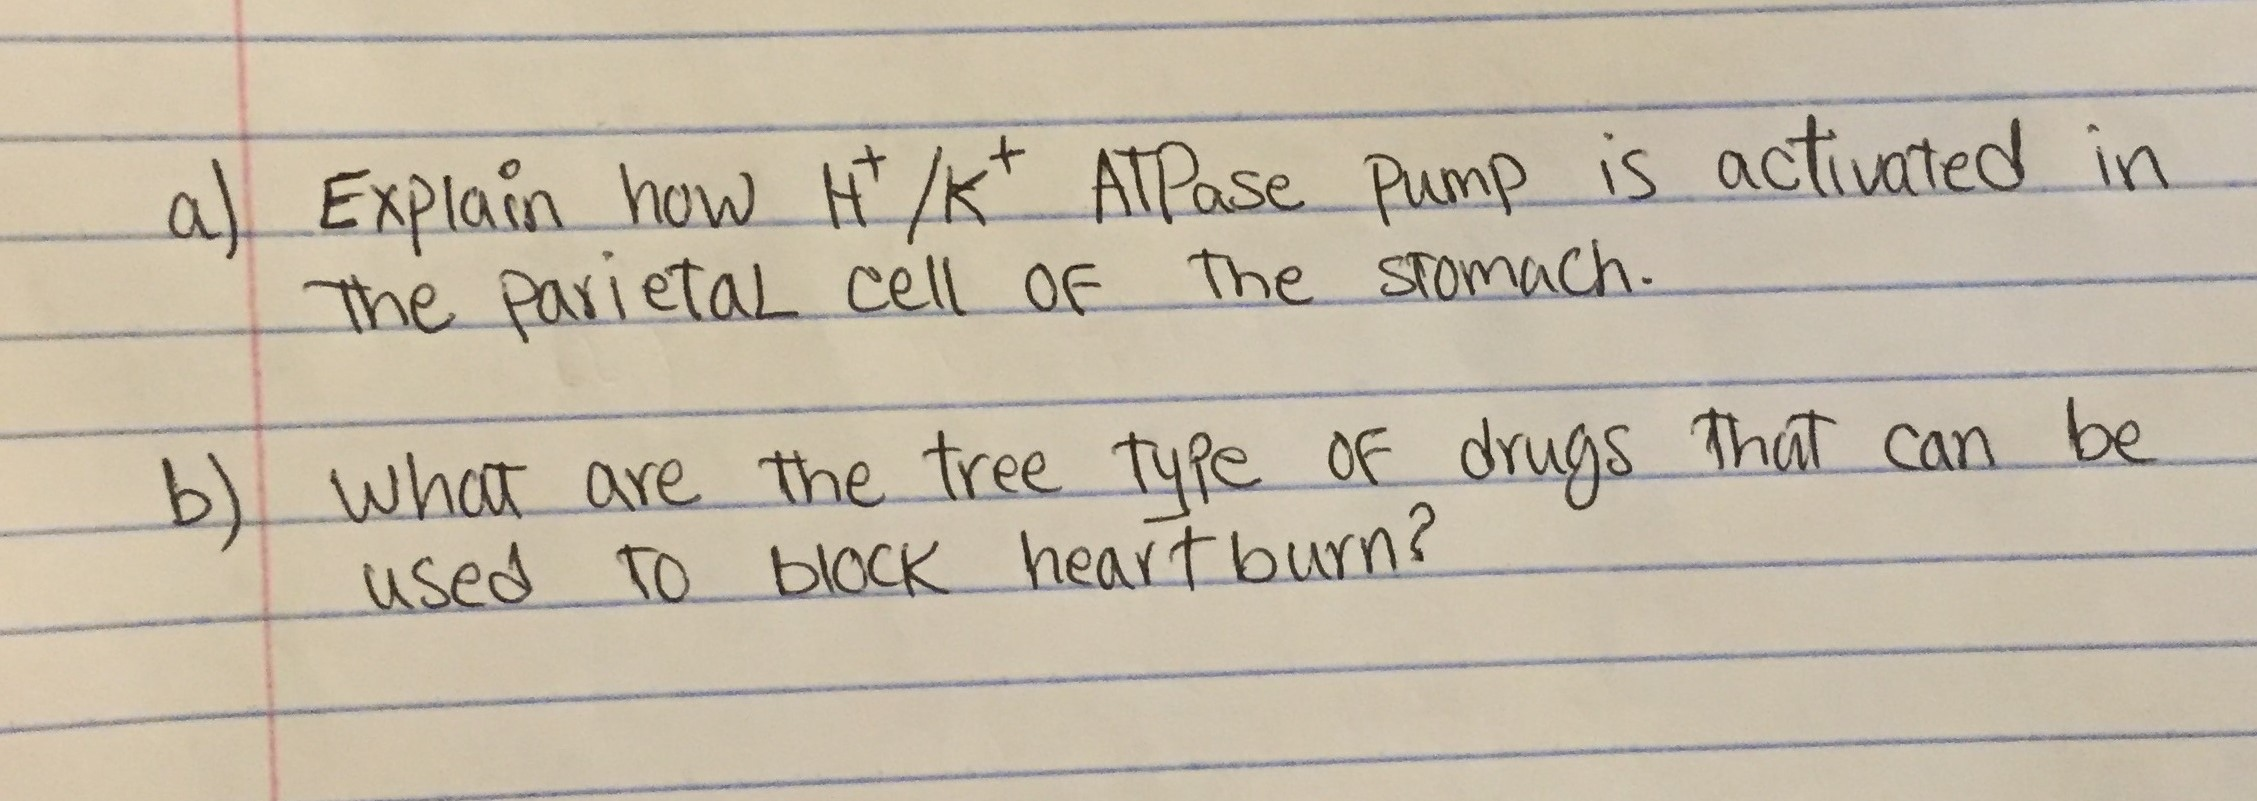 a) Explain how H⁺/K⁺ ATPase pump is activated in
the parietal cell of the stomach.
b) What are the tree type of drugs that can be
used to block heartburn?